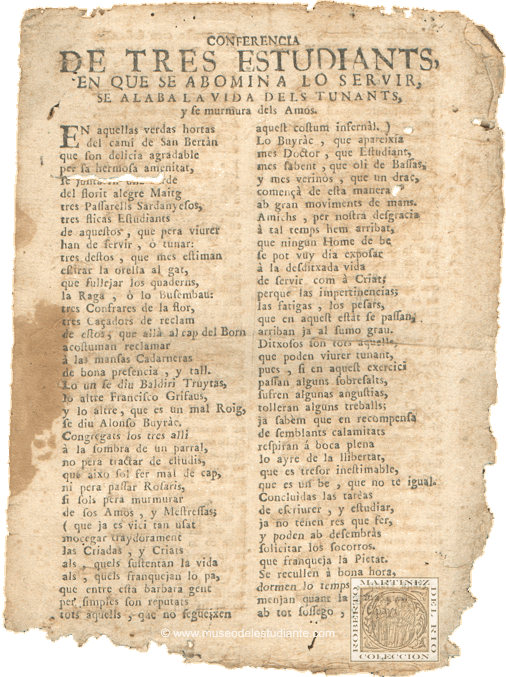 CONFERENCIA
DE TRES ESTUDIANTS,
EN QUE SE ABOMINA LO SERVIR,
SE ALABA LA VIDA DELS TUNANTS,
y se murmura dels Amos.
EN aquellas verdas hortas
del camí de San Bertàn
que son delicia agradable
per sa hermosa amenitat,
se juntaren una tarde
del florit alegre Maitg
tres Passarells Sardanyesos,
tres sticas Estudiants
de aquestos, que pera viurer
han de servir, ò tunar:
tres destos, que mes estiman
estirar la orella al gat,
que fullejar los quaderns,
la Raga, ò lo Busembau:
tres Confrares de la flor,
tres Caçadors de reclam
de estos, que allà al cap del Born
acostuman reclamar
à las mansas Cadarneras
de bona presencia, y tall.
Lo un se diu Baldiri Truytas,
lo altre Francisco Grifaus,
y lo altre, que es un mal Roig,
se diu Alonso Buyràc.
Congregats los tres allì
à la sombra de un parral,
no pera tractar de estudis,
que aixo sol fer mal de cap,
ni pera passar Rosaris,
si sols pera murmurar
de sos Amos, y Mestressas;
( que ja es vici tan usat
mocegar traydorament
las Criadas, y Criats
als, quels sustentan la vida
als, quels franquejan lo pa,
que entre esta barbara gent
per simples son reputats
tots aquells, que no segueixen
aquest costum infernal. )
Lo Buyràc, que apareixia
mes Doctor, que Estudiant,
mes sabent, que oli de Bassas,
y mes verinòs, que un drac,
començà de esta manera
ab gran moviments de mans.
Amichs, per nostra desgracia
à tal temps hem arribat,
que ningun Home de be
se pot vuy dia exposar
à la desditxada vida
de servir com à Criat;
perque las impertinencias,
las fatigas, los pesars,
que en aquest estat se passan,
arriban ja al sumo grau.
Ditxosos son tots aquells,
que poden viurer tunant,
pues, si en aquest exercici
passan alguns sobresalts,
sufren algunas angustias,
tolleran alguns treballs;
ja sabem que en recompensa
de semblants calamitats
respiran à boca plena
lo ayre de la llibertat,
que es tresor inestimable,
que es un be, que no te igual.
Concluidas las tareas
de escriurer, y estudiar,
ja no tenen res que fer,
y poden ab desembràs
solicitar los socorros.
que franqueja la Pietat.
Se recullen à bona hora,
dormen lo temps
menjan quant la
ab tot sossego,
ROBERTO MARTINEZ DEL RIO
COLECCION
© www.museodelestudiante.com